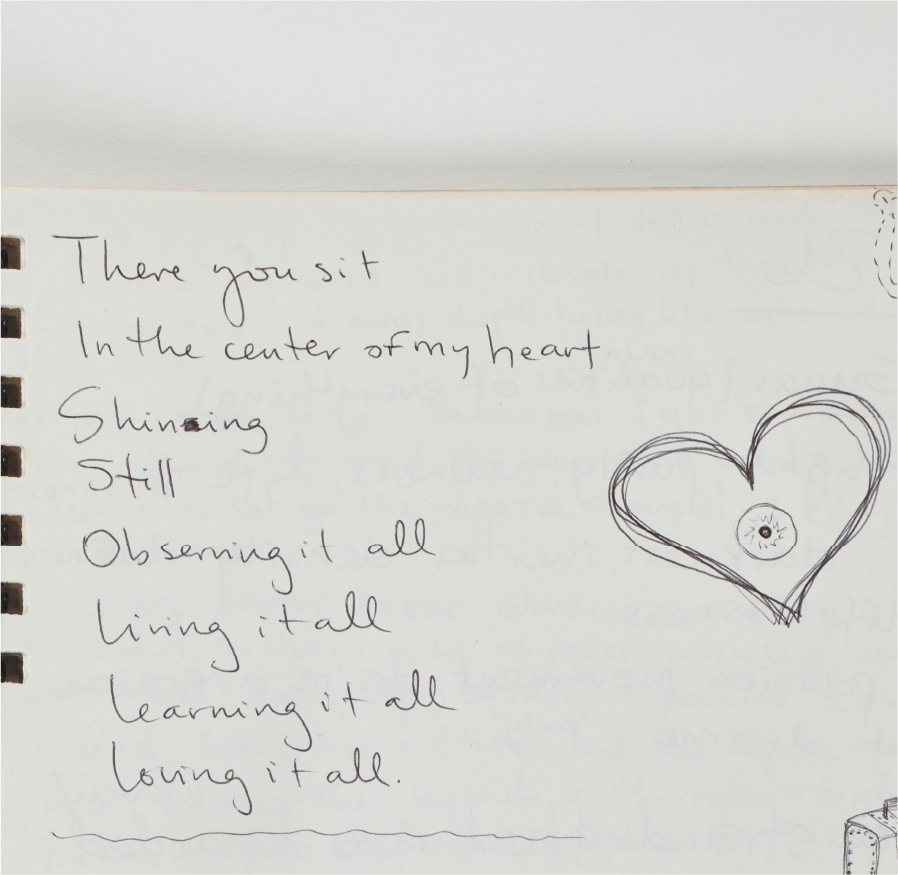 There you sit
In the center of my heart
Shining
Still
Observing it all
Living it all
Learning it all
Loving it all.